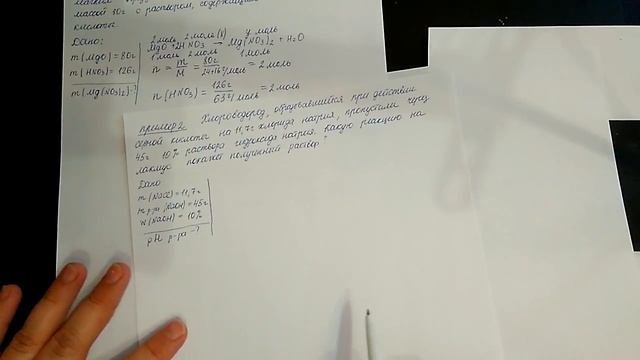 массой 80г с раствором, содержащим
кислоты
Дано:
m(MgO) = 80г
m(HNO3) = 126г
m(Mg(NO3)2)-?
2 моль 2 моль (н) y моль
MgO + 2HNO3 → Mg(NO3)2 + H2O
1 моль 2 моль 1 моль
n = m/M = 80г/24+16г/моль = 2 моль
n(HNO3) = 126г/63г/моль = 2 моль
Пример 2. Хлороводород, образовавшийся при действии
серной кислоты на 11,7г хлорида натрия, пропустили через
45г 10% раствора гидроксида натрия. Какую реакцию на
лакмус покажет полученный раствор?
Дано
m(NaCl) = 11,7г
m р-ра (NaOH) = 45г
w(NaOH) = 10%
pH р-ра -?